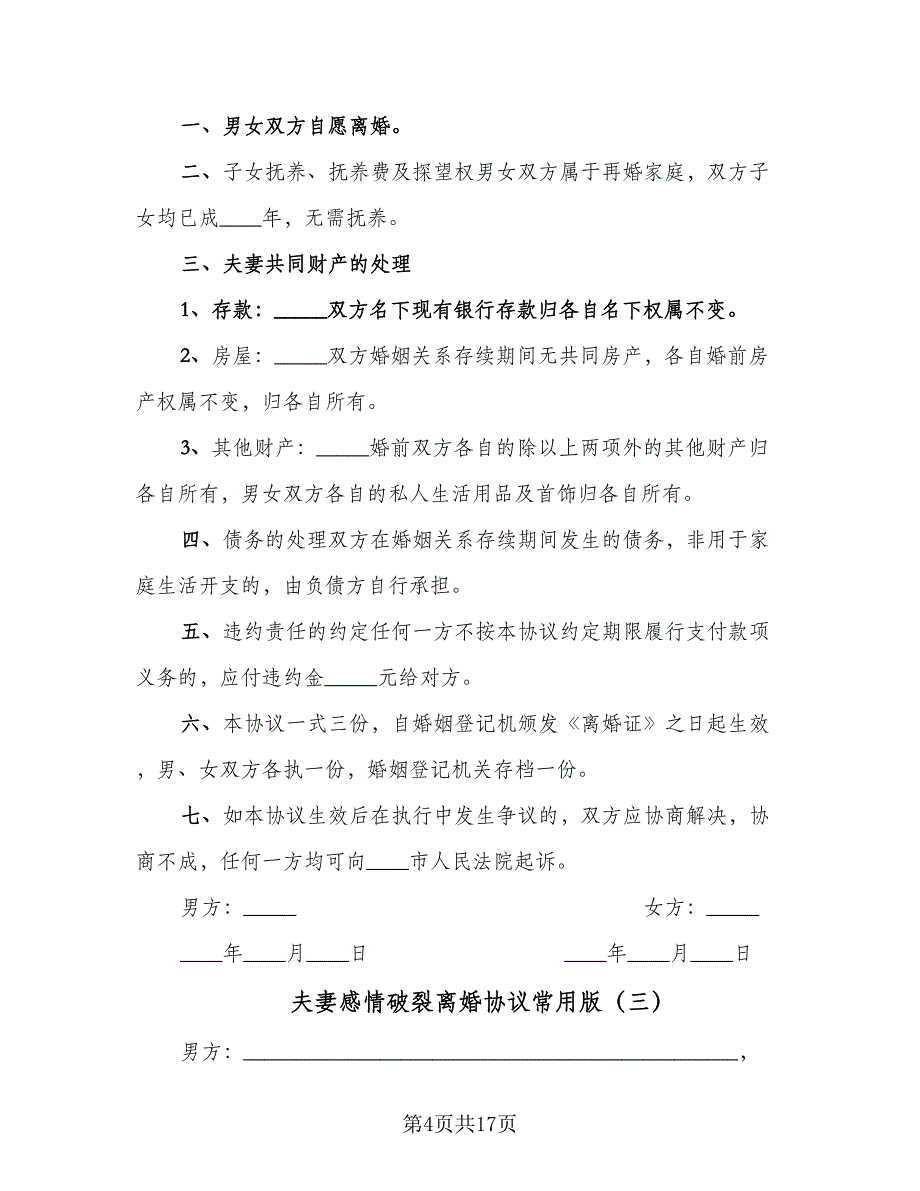 一、男女双方自愿离婚。
二、子女抚养、抚养费及探望权男女双方属于再婚家庭，双方子
女均已成____年，无需抚养。
三、夫妻共同财产的处理
1、存款：_____双方名下现有银行存款归各自名下权属不变。
2、房屋：_____双方婚姻关系存续期间无共同房产，各自婚前房
产权属不变，归各自所有。
3、其他财产：_____婚前双方各自的除以上两项外的其他财产归
各自所有，男女双方各自的私人生活用品及首饰归各自所有。
四、债务的处理双方在婚姻关系存续期间发生的债务，非用于家
庭生活开支的，由负债方自行承担。
五、违约责任的约定任何一方不按本协议约定期限履行支付款项
义务的，应付违约金_____元给对方。
六、本协议一式三份，自婚姻登记机颁发《离婚证》之日起生效
，男、女双方各执一份，婚姻登记机关存档一份。
七、如本协议生效后在执行中发生争议的，双方应协商解决，协
商不成，任何一方均可向____市人民法院起诉。
男方：_____ 女方：_____
____年____月____日 ____年____月____日
夫妻感情破裂离婚协议常用版（三）
男方：_______________________________________________，
第4页共17页